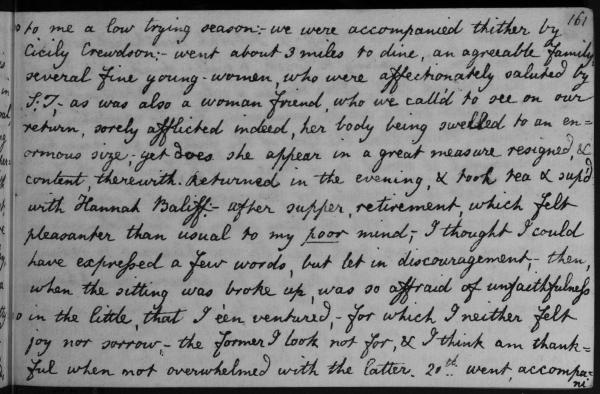 161
to me a low trying season:- we were accompanied thither by
Cicily Crewdson;- went about 3 miles to dine, an agreeable family
several fine young-women, who were affectionately saluted by
S:T;- as was also a woman friend, who we call'd to see on our
return, sorely afflicted indeed, her body being swelled to an en=
ormous size; yet does she appear in a great measure resigned, &
content, therewith. Returned in the evening, & took tea & sup'd
with Hannah Baliff:- after supper, retirement, which felt
pleasanter than usual to my poor mind;- I thought I could
have expressed a few words, but let in discouragement;- then,
when the sitting was broke up, was so affraid of unfaithfulness
in the little, that I e'en ventured,- for which I neither felt
joy nor sorrow;- the former I look not for, & I think am thank=
ful when not overwhelmed with the latter. 20th went, accompa=
ni